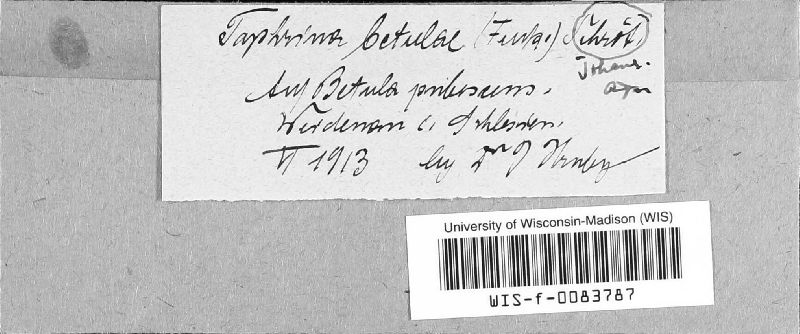 Taphrina betulae (Fuck.) Schröt.
Johans.
Auf Betula pubescens.
Weidenau i. Schlesien.
VI 1913 leg Dr J Hruby
University of Wisconsin-Madison (WIS)
WIS-f-0083787